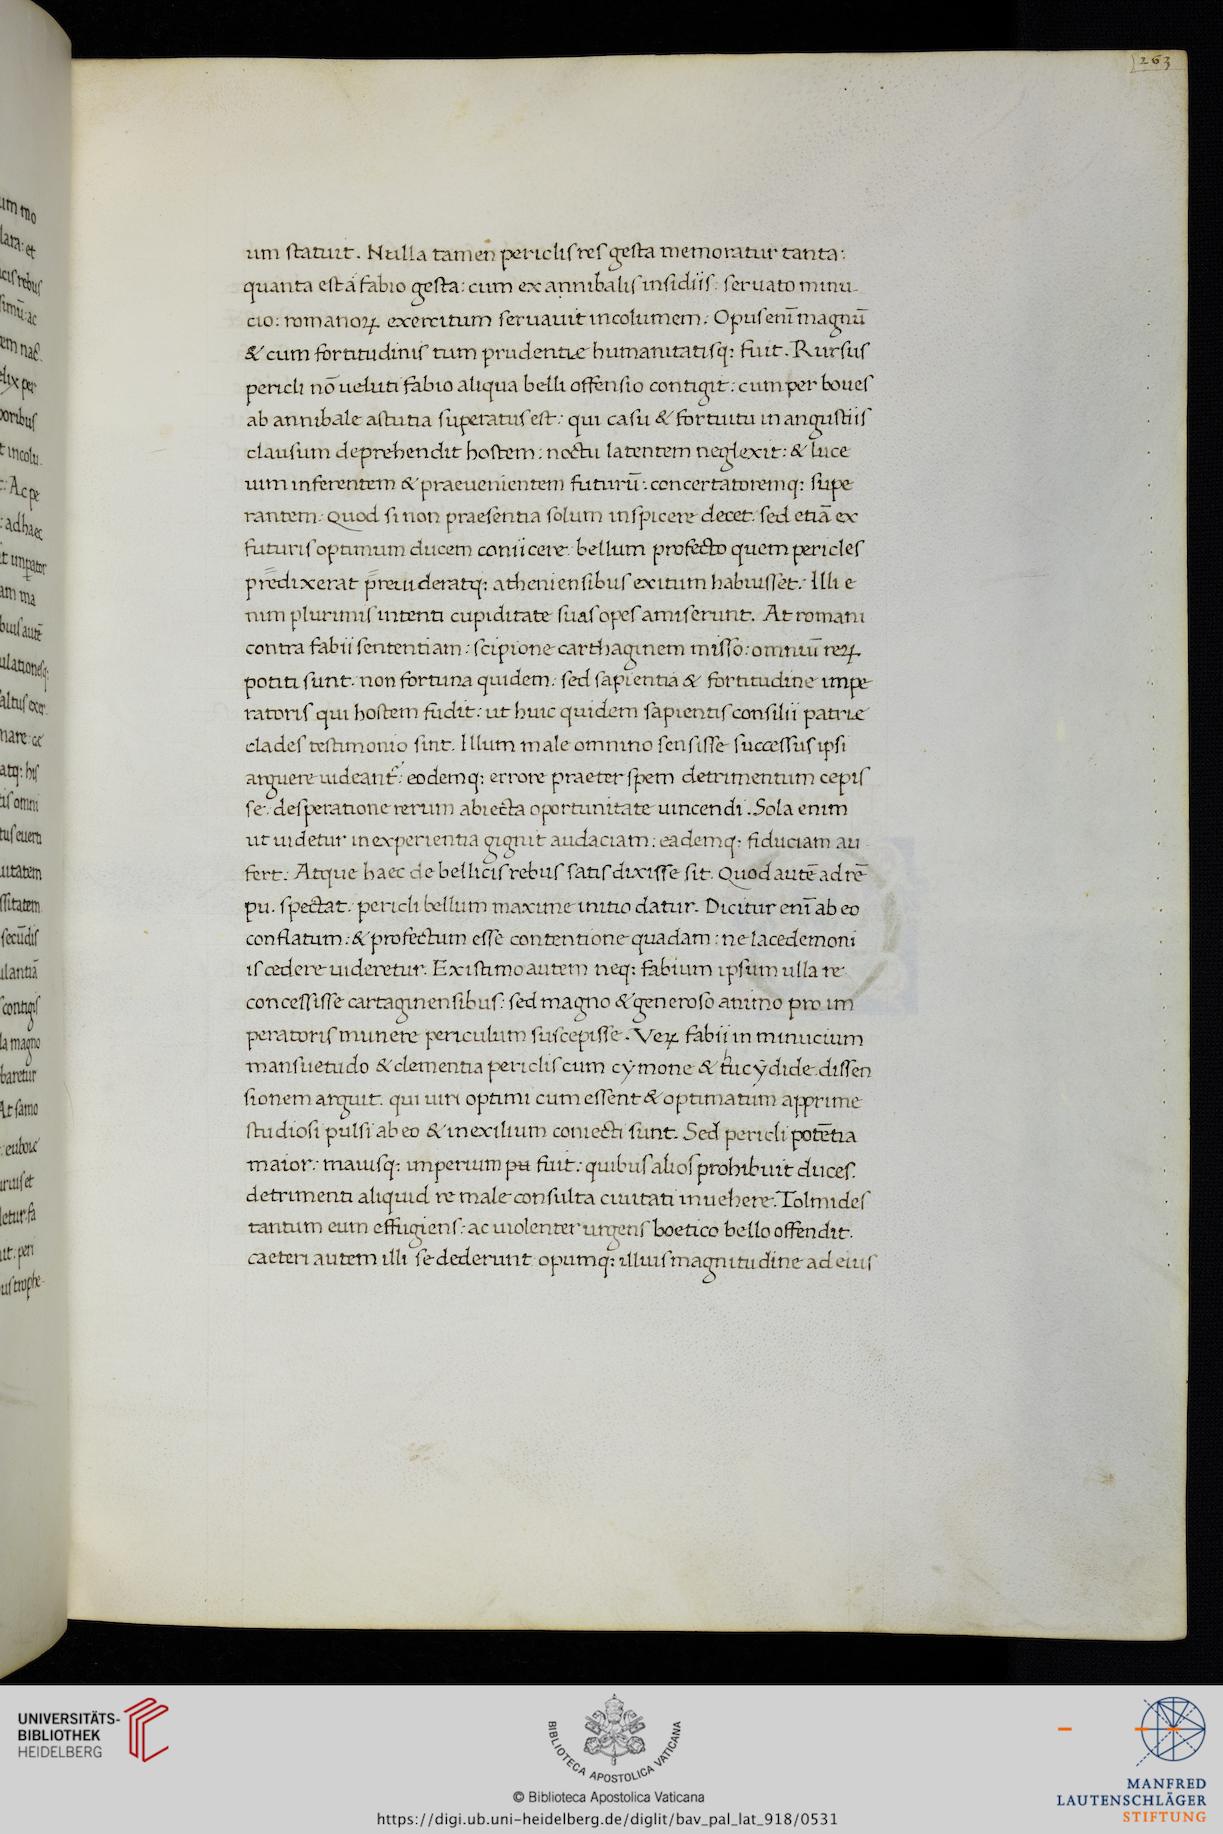 263
um statuit. Nulla tamen periclis res gesta memoratur tanta:
quanta est á fabio gesta: cum ex annibalis insidiis: seruato minu-
cio: romanoꝝ exercitum seruauit incolumem: Opus enī magnū
& cum fortitudinis tum prudentię humanitatisq: fuit. Rursus
pericli nō ueluti fabio aliqua belli offensio contigit: cum per boues
ab annibale astutia superatus est: qui casu & fortuitu in angustiis
clausum deprehendit hostem: noctu latentem neglexit: & luce
uim inferentem & praeuenientem futurū: concertatoremq: supe
rantem: Quod si non praesentia solum inspicere decet: sed etiā ex
futuris optimum ducem coniicere: bellum profecto quem pericles
predixerat preuideratq: atheniensibus exitum habuisset: Illi e
nim plurimis intenti cupiditate suas opes amiserunt. At romani
contra fabii sententiam: scipione carthaginem misso: omniū reꝝ
potiti sunt: non fortuna quidem: sed sapientia & fortitudine impe
ratoris qui hostem fudit: ut huic quidem sapientis consilii patrię
clades testimonio sint. Illum male omnino sensisse successus ipsi
arguere uideant: eodemq: errore praeter spem detrimentum cepis
se: desperatione rerum abiecta oportunitate uincendi. Sola enim
ut uidetur inexperientia gignit audaciam: eademq: fiduciam au-
fert: Atque haec de bellicis rebus satis dixisse sit. Quod autē ad rē
pu. spectat: pericli bellum maxime initio datur. Dicitur enī ab eo
conflatum: & profectum esse contentione quadam: ne lacedemoni
is cedere uideretur. Existimo autem neq: fabium ipsum ulla re
concessisse cartaginensibus: sed magno & generoso animo pro im
peratoris munere periculum suscepisse. Veꝝ fabii in minucium
mansuetudo & clementia periclis cum cymone & thucydide dissen
sionem arguit: qui uiri optimi cum essent & optimatum apprime
studiosi pulsi ab eo & in exilium coniecti sunt. Sed pericli potētia
maior: maiusq: imperium fuit: quibus alios prohibuit duces:
detrimenti aliquid re male consulta ciuitati inuehere: Tolmides
tantum eum effugiens: ac uiolenter urgens boetico bello offendit:
caeteri autem illi se dederunt opumq: illius magnitudine ad eius
UNIVERSITÄTS-
BIBLIOTHEK
HEIDELBERG
BIBLIOTECA APOSTOLICA VATICANA
© Biblioteca Apostolica Vaticana
https://digi.ub.uni-heidelberg.de/diglit/bav_pal_lat_918/0531
MANFRED
LAUTENSCHLÄGER
STIFTUNG